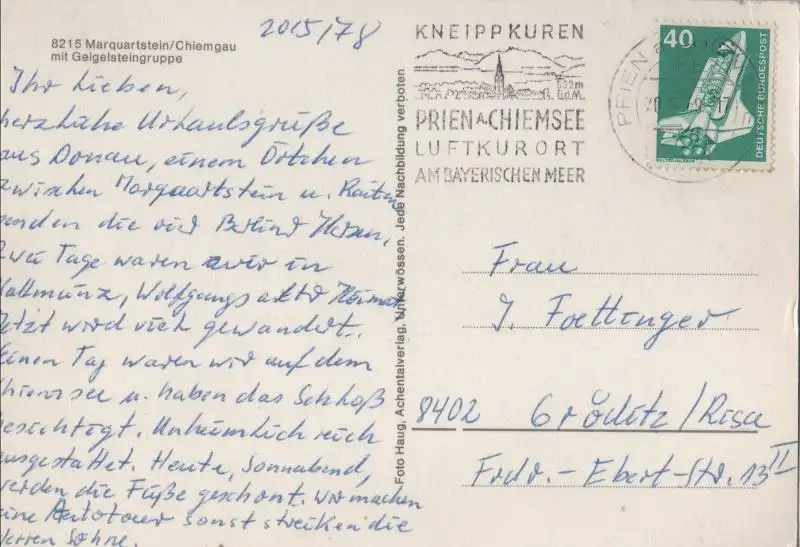 20/5/78
8215 Marquartstein/Chiemgau
mit Geigelsteingruppe
Ihr Lieben,
herzliche Urlaubsgrüße
aus Donau, einem Örtchen
zwischen Marquartstein u. Raiten
senden die vier
Zwei Tage waren wir in
Kallmünz, Wolfgangs alter Heimat
Jetzt wird viel gewandert.
Einen Tag waren wir auf dem
Chiemsee u. haben das Schloß
besichtigt. Unheimlich reich
ausgestattet. Heute, Sonnabend,
werden die Füße geschont. Wir machen
eine Autotour sonst streiken die
Herren Söhne.
Foto Haug, Achentalverlag, Unterwössen. Jede Nachbildung verboten
KNEIPPKUREN
532m
ü.d.M.
PRIEN A. CHIEMSEE
LUFTKURORT
AM BAYERISCHEN MEER
PRIEN
40
DEUTSCHE BUNDESPOST
WELTRAUMLABOR
Frau
J. Foettinger
8402 Gröditz/Riesa
Frdr.-Ebert-Str. 13 II